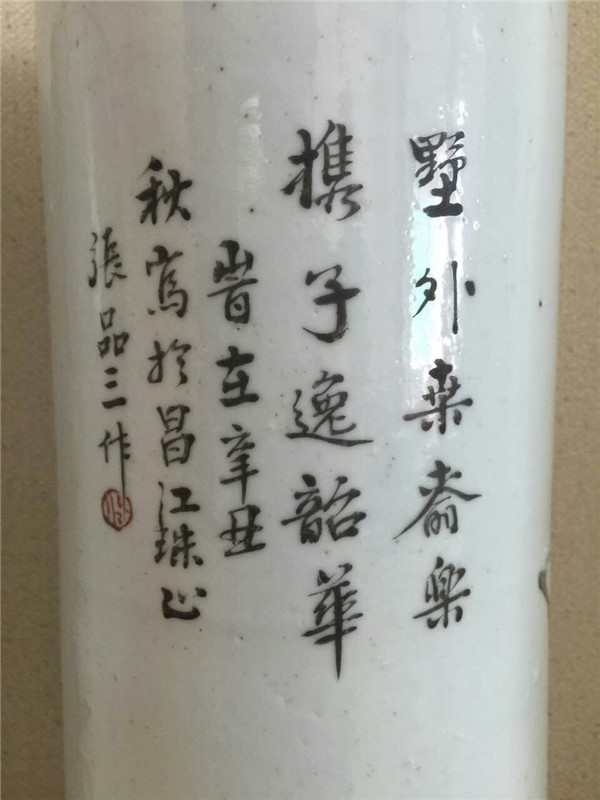 墅外桒樂
携子逸韶華
旹在辛丑
秋寫於昌江珠山
張品三作